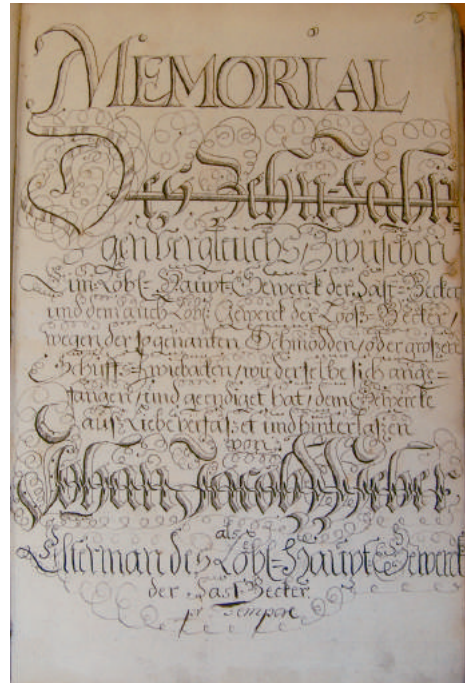 MEMORIAL
Des Zehn-Jähri
gen Vergleichs, Zwischen
Eim Löbl- Haupt-Gewerck der Fast-Becker
und dem auch Löbl. Gewerck der Looß-Becker,
wegen der so genanten Schmodden, oder großen
Schiff-Zwiebacken, wie derselbe sich ange-
fangen, und geendiget hat, dem Gewercke
auß Liebe verfaßet und hinterlaßen
von
Johan Jacob Weber
als
Elterman des Löbl-Haupt-Gewerck
der Fast-Becker.
pr. tempore